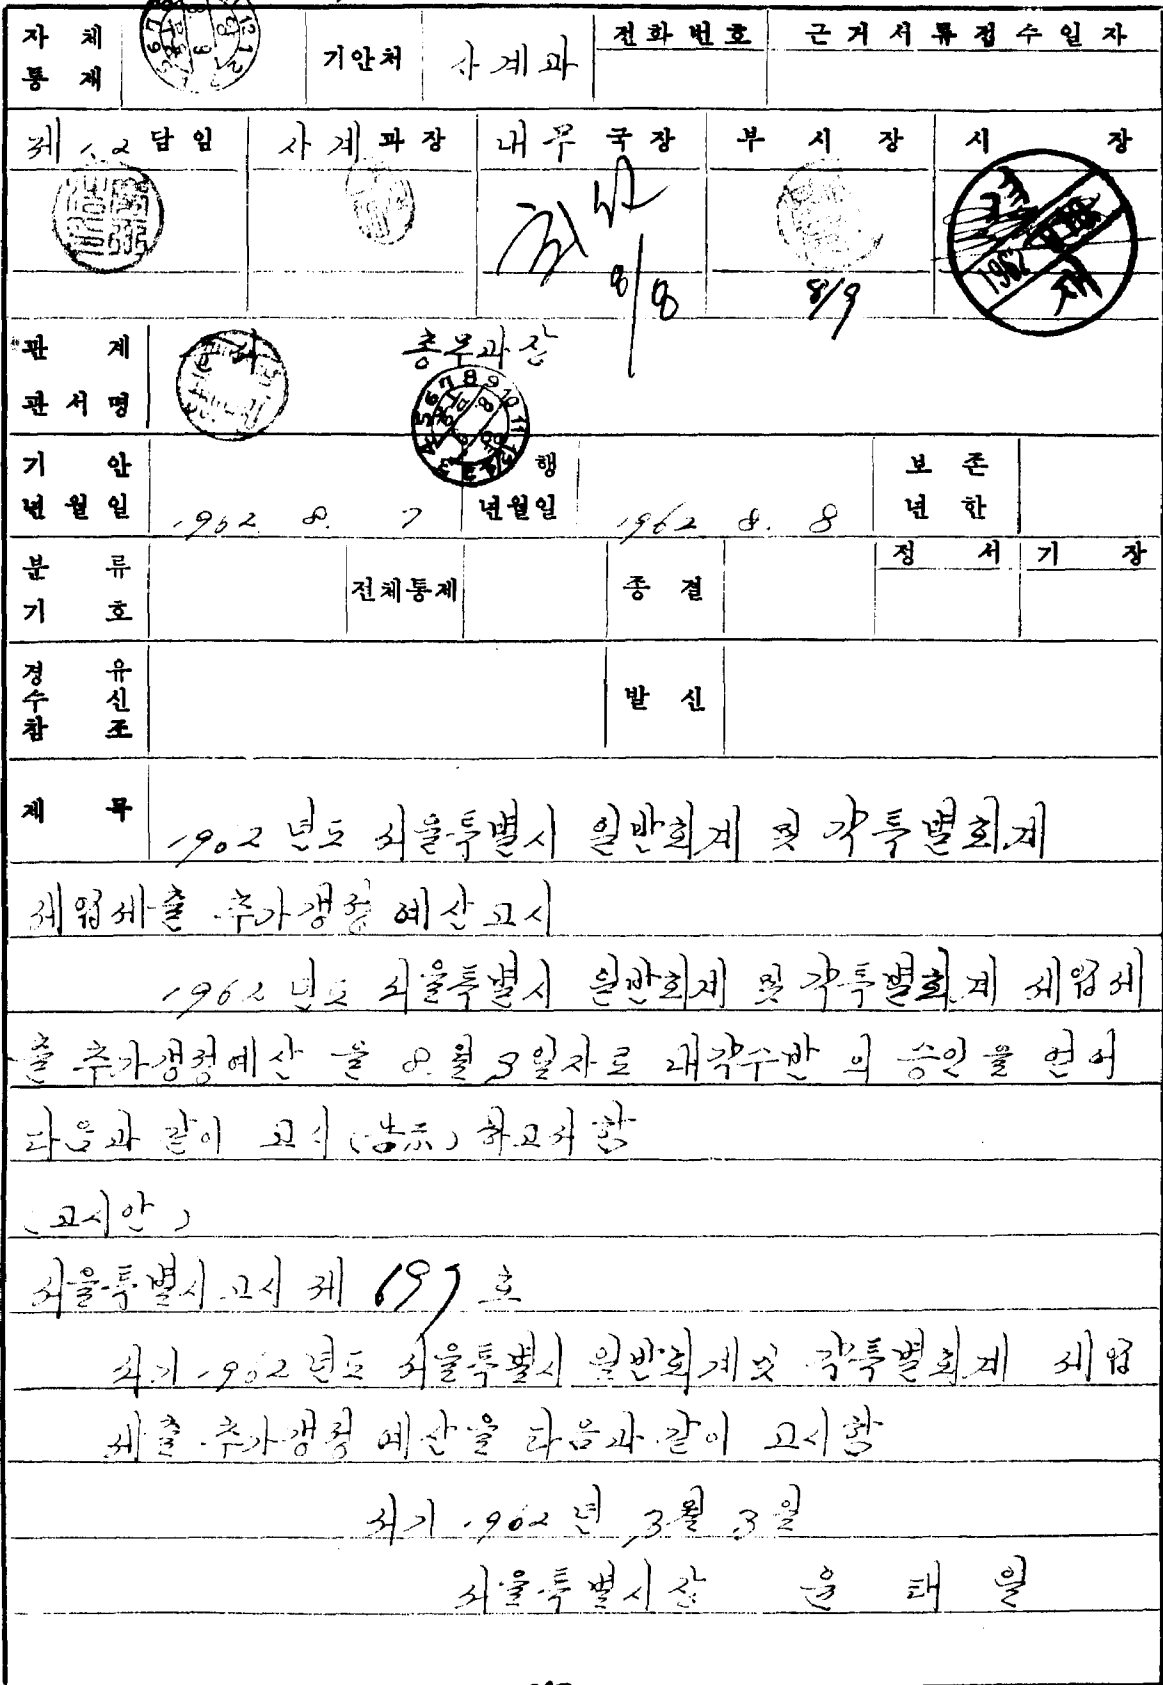 자체통제 기안처 사계과 전화번호 근거서류접수일자
제1,2담임 사계과장 내무국장 부시장 시장
8/8 8/9 1962
관계관서명 총무과장
기안년월일 1962. 8. 7 행년월일 1962 8. 8 보존년한
분류기호 전체통제 종결 정서 기장
경유수신참조 발신
제목 1962년도 서울특별시 일반회계 및 각특별회계
세입세출 추가갱정 예산고시
1962년도 서울특별시 일반회계 및 각특별회계 세입세
출 추가갱정예산을 8월 3일자로 내각수반의 승인을 얻어
다음과 같이 고시(告示)하고저함
(고시안)
서울특별시고시 제 697 호
서기 1962년도 서울특별시 일반회계및 각특별회계 세입
세출 추가갱정 예산을 다음과 같이 고시함
서기 1962년 월 일
서울특별시장 윤 태 일